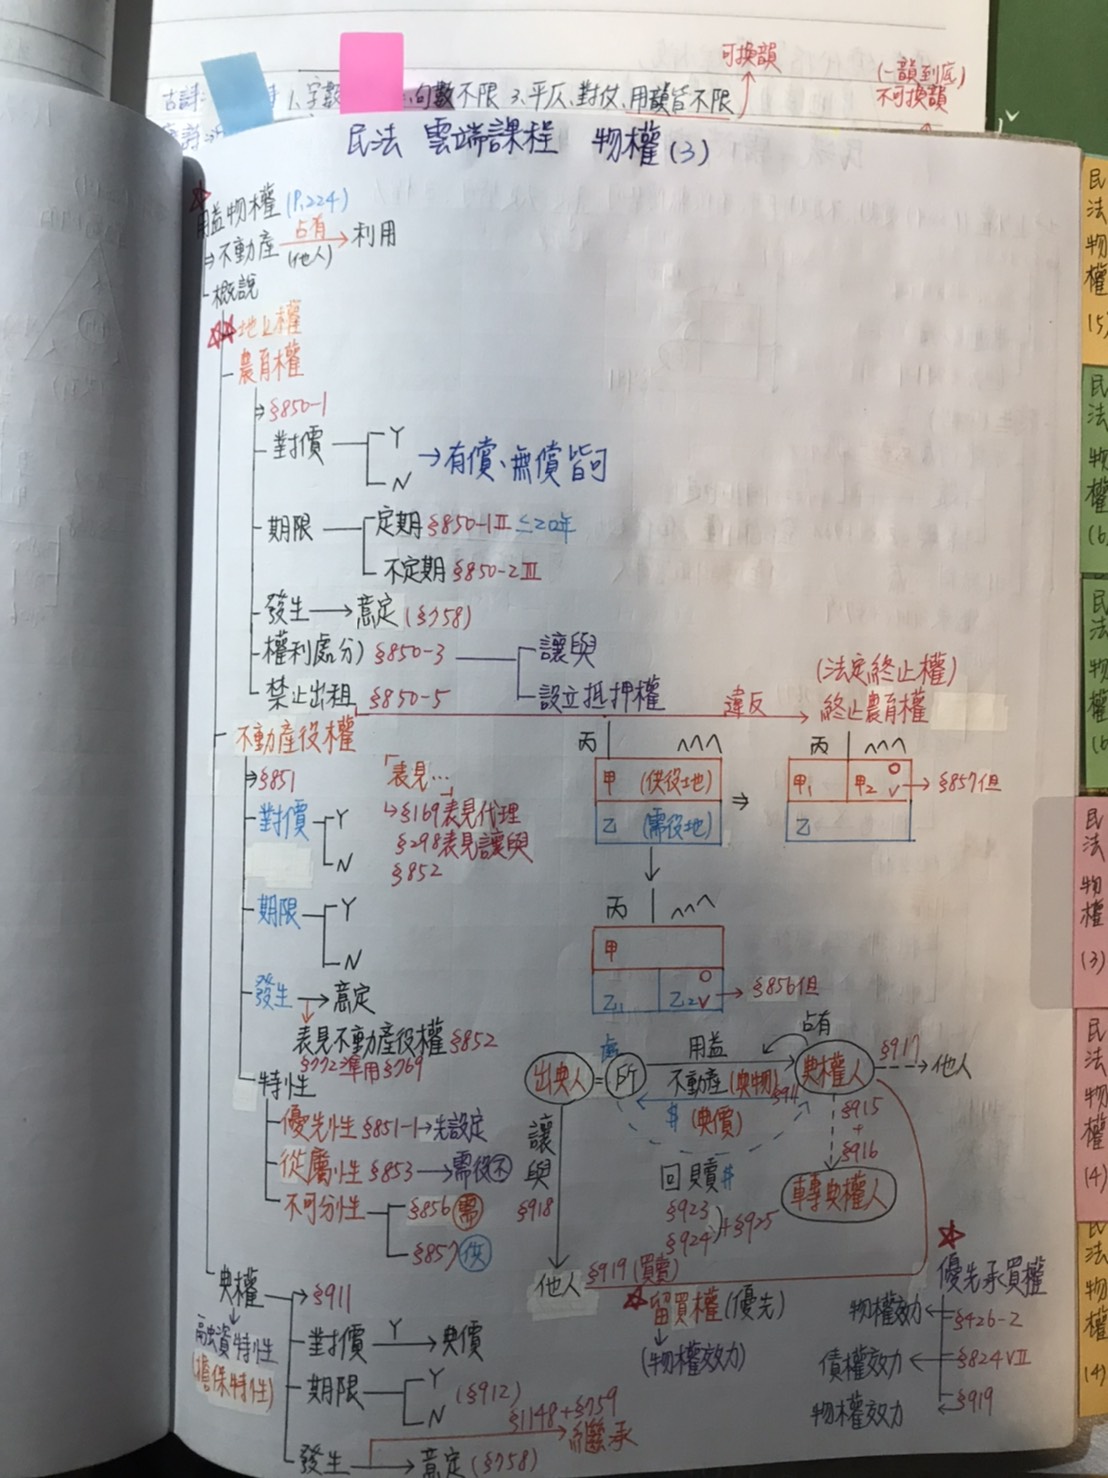 可換韻
(一韻到底)
不可換韻
古詩:
1、字數
句數不限 3、平仄、對仗、用韻皆不限
民法 雲端課程 物權(3)
用益物權(P.224)
⇒不動產 占有(他人)→利用
概說
☆☆地上權
農育權
⇒§850-1
對價 Y
N →有償、無償皆可
期限 定期§850-1Ⅱ≤20年
不定期§850-2Ⅲ
發生→意定(§758)
權利處分) §850-3 讓與
設立抵押權
禁止出租 §850-5 違反→ (法定終止權)
終止農育權
不動產役權
⇒§851
對價 Y
N
「表見…」
↳§169表見代理
§298表見讓與
§852
丙
甲 (供役地)
乙 (需役地)
⇒
丙
甲1 甲2 →§857但
乙
期限 Y
N
丙
甲
乙1 乙2 →§856但
發生→意定
表見不動產役權§852
§772準用§769
特性
優先性 §851-1→先設定
從屬性 §853→需役不
不可分性 §856 需
§857 供
出典人=所
用益
不動產(典物)
$ (典價)
占有
典權人
§917→他人
§915
+
§916
轉典權人
回贖$
§923
§924)+§925
讓與
§918
他人
§919(買賣)
☆留買權(優先)
(物權效力)
☆
優先承買權
物權效力←§426-2
債權效力←§824Ⅶ
物權效力←§919
典權
融資特性
(擔保特性)
→§911
對價 Y→典價
期限 Y
N
(§912)
發生→意定(§758)
§1148+§759
繼承
民法物權(5)
民法物權(6)
民法物權(6
民法物權(3)
民法物權(4)
民法物權(4)